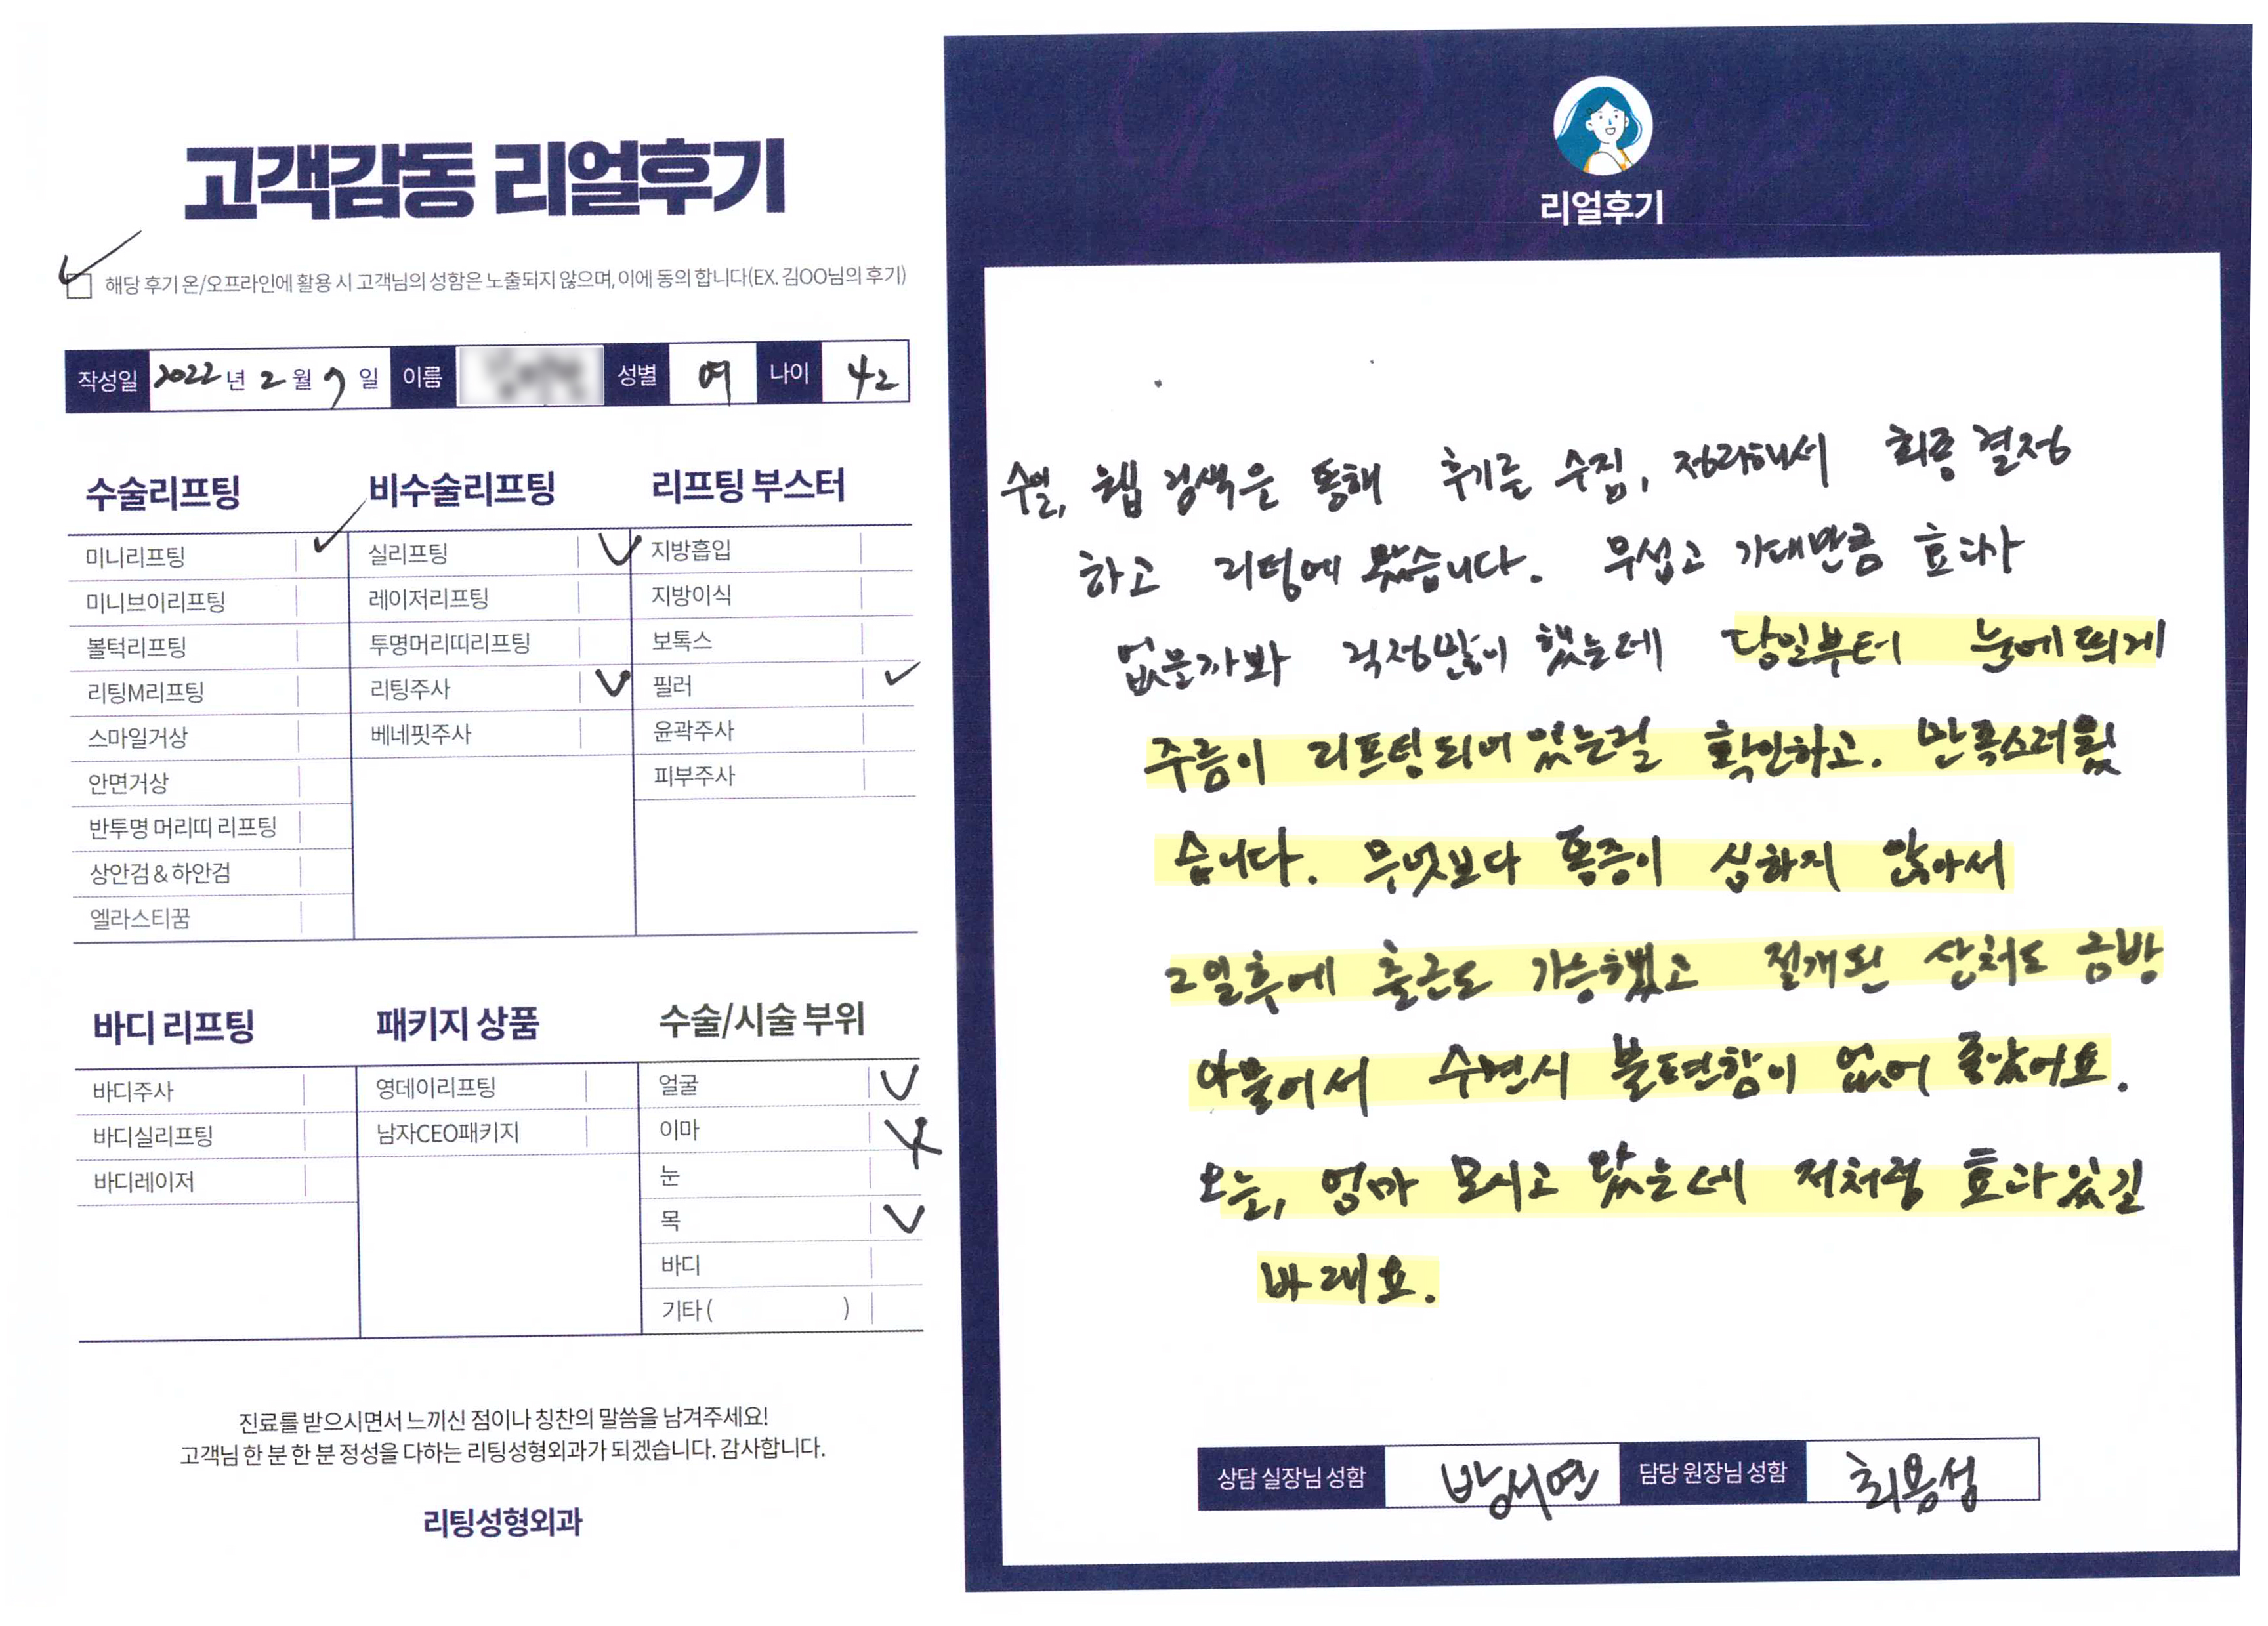 고객감동 리얼후기
해당 후기 온/오프라인에 활용 시 고객님의 성함은 노출되지 않으며, 이에 동의 합니다(EX. 김OO님의 후기)
작성일 2022년 2월 9일 이름 성별 여 나이 42
수술리프팅
미니리프팅
미니브이리프팅
볼턱리프팅
리팅M리프팅
스마일거상
안면거상
반투명 머리띠 리프팅
상안검 & 하안검
엘라스티꿈
비수술리프팅
실리프팅
레이저리프팅
투명머리띠리프팅
리팅주사
베네핏주사
리프팅 부스터
지방흡입
지방이식
보톡스
필러
윤곽주사
피부주사
바디 리프팅
바디주사
바디실리프팅
바디레이저
패키지 상품
영데이리프팅
남자CEO패키지
수술/시술 부위
얼굴
이마
눈
목
바디
기타 ( )
진료를 받으시면서 느끼신 점이나 칭찬의 말씀을 남겨주세요!
고객님 한 분 한 분 정성을 다하는 리팅성형외과가 되겠습니다. 감사합니다.
리팅성형외과
리얼후기
웹 검색은 통해 후기를 수집, 정리해서 최종 결정
하고 리팅에 왔습니다. 무섭고 기대만큼 효과가
없을까봐 걱정많이 했는데 당일부터 눈에 띄게
주름이 리프팅되어 있는걸 확인하고. 만족스러웠
습니다. 무엇보다 통증이 심하지 않아서
2일후에 출근도 가능했고 절개된 상처도 금방
아물어서 수면시 불편함이 없어 좋았어요.
오늘, 엄마 모시고 왔는데 저처럼 효과있길
바래요.
상담 실장님 성함 방서연 담당 원장님 성함 최용성